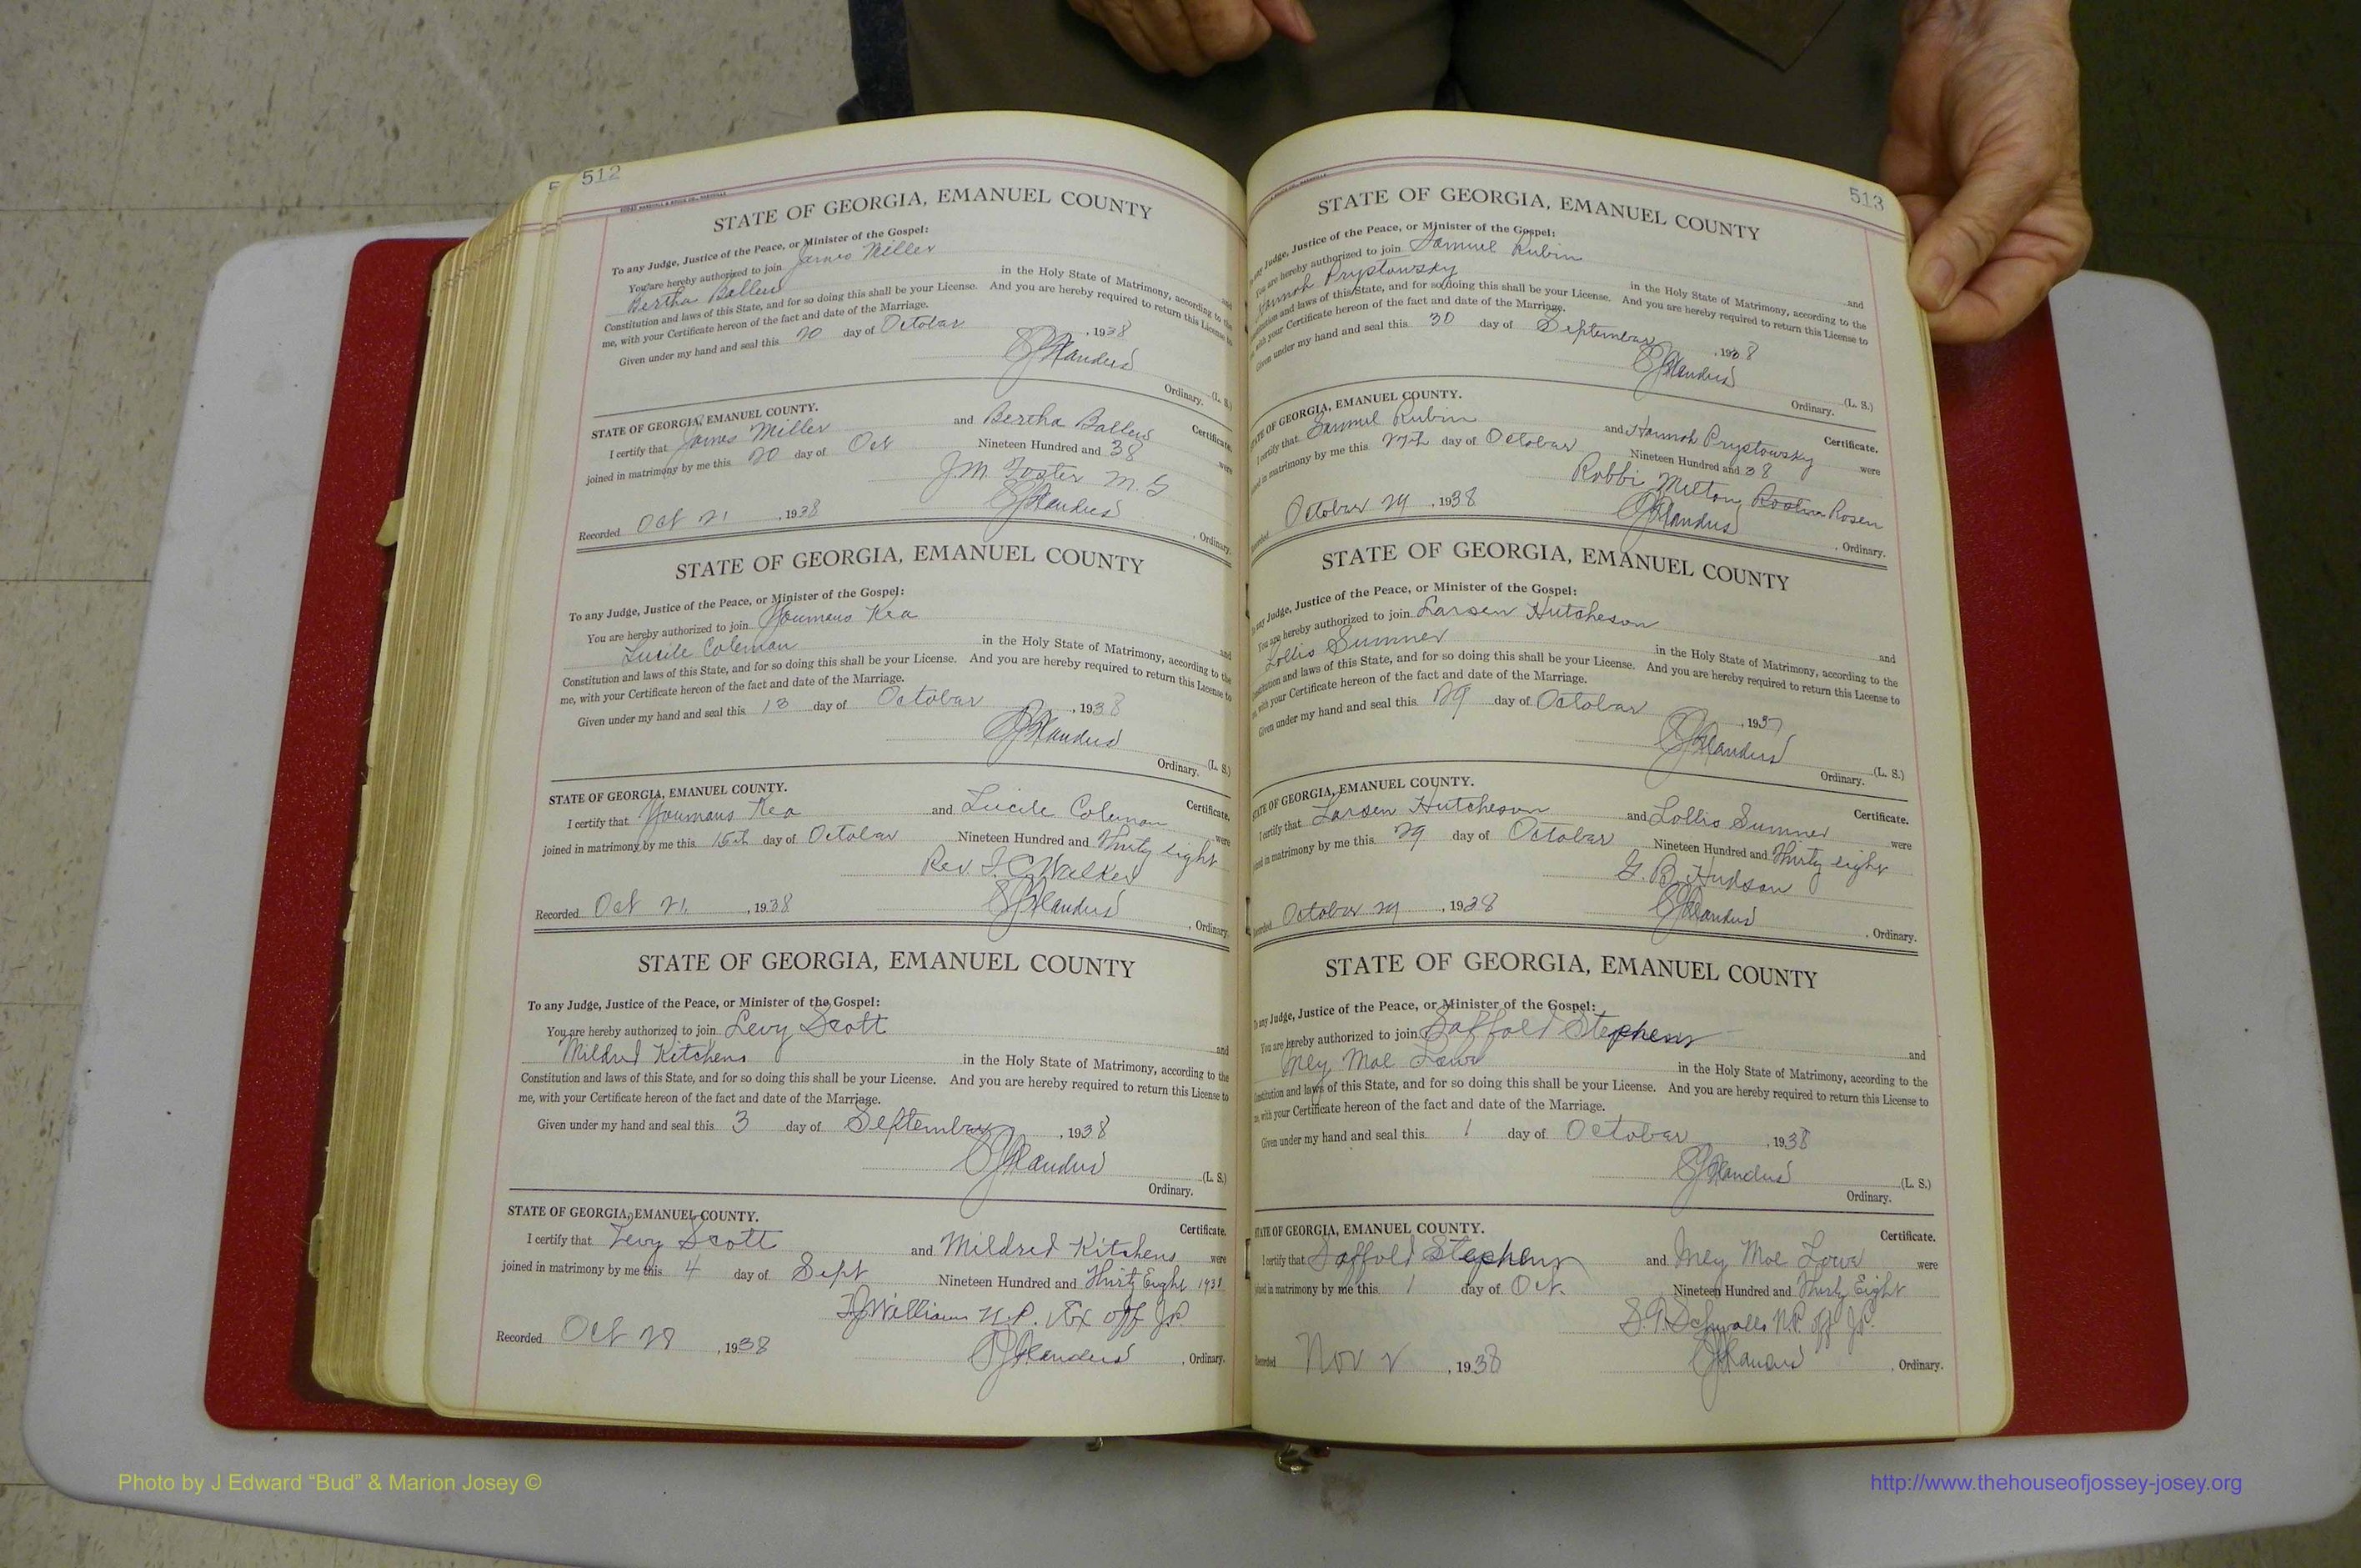 512
STATE OF GEORGIA, EMANUEL COUNTY
To any Judge, Justice of the Peace, or Minister of the Gospel:
You are hereby authorized to join James Miller
and
Bertha Ballew in the Holy State of Matrimony, according to the
Constitution and laws of this State, and for so doing this shall be your License. And you are hereby required to return this License to
me, with your Certificate hereon of the fact and date of the Marriage.
Given under my hand and seal this 20 day of October, 1938
(L. S.)
Ordinary.
STATE OF GEORGIA, EMANUEL COUNTY. Certificate.
I certify that James Miller and Bertha Ballew were
joined in matrimony by me this 20 day of Oct Nineteen Hundred and 38
J.M. Foster M.G
Recorded Oct 21, 1938 , Ordinary.
STATE OF GEORGIA, EMANUEL COUNTY
To any Judge, Justice of the Peace, or Minister of the Gospel:
You are hereby authorized to join Youmans Kea and
Lucile Coleman in the Holy State of Matrimony, according to the
Constitution and laws of this State, and for so doing this shall be your License. And you are hereby required to return this License to
me, with your Certificate hereon of the fact and date of the Marriage.
Given under my hand and seal this 13 day of October, 1938
(L. S.)
Ordinary.
STATE OF GEORGIA, EMANUEL COUNTY. Certificate.
I certify that Youmans Kea and Lucile Coleman were
joined in matrimony by me this 15th day of October Nineteen Hundred and Thirty eight
Rev. I. C. Walker
Recorded Oct 21, 1938 , Ordinary.
STATE OF GEORGIA, EMANUEL COUNTY
To any Judge, Justice of the Peace, or Minister of the Gospel:
You are hereby authorized to join Levy Scott and
Mildred Kitchens in the Holy State of Matrimony, according to the
Constitution and laws of this State, and for so doing this shall be your License. And you are hereby required to return this License to
me, with your Certificate hereon of the fact and date of the Marriage.
Given under my hand and seal this 3 day of September, 1938
(L. S.)
Ordinary.
STATE OF GEORGIA, EMANUEL COUNTY. Certificate.
I certify that Levy Scott and Mildred Kitchens were
joined in matrimony by me this 4 day of Sept Nineteen Hundred and Thirty Eight 1938
Williams N.P. & Ex off J.P.
Recorded Oct 28, 1938 , Ordinary.
513
STATE OF GEORGIA, EMANUEL COUNTY
any Judge, Justice of the Peace, or Minister of the Gospel:
You are hereby authorized to join Samuel Rubin and
Hannah Prystowsky in the Holy State of Matrimony, according to the
Constitution and laws of this State, and for so doing this shall be your License. And you are hereby required to return this License to
with your Certificate hereon of the fact and date of the Marriage.
Given under my hand and seal this 30 day of September, 1938
(L. S.)
Ordinary.
STATE OF GEORGIA, EMANUEL COUNTY. Certificate.
I certify that Samuel Rubin and Hannah Prystowsky were
in matrimony by me this 27th day of October Nineteen Hundred and 38
Rabbi Milton Rosen
October 29, 1938 , Ordinary.
STATE OF GEORGIA, EMANUEL COUNTY
any Judge, Justice of the Peace, or Minister of the Gospel:
You are hereby authorized to join Larsen Hutcheson and
Lollis Sumner in the Holy State of Matrimony, according to the
Constitution and laws of this State, and for so doing this shall be your License. And you are hereby required to return this License to
with your Certificate hereon of the fact and date of the Marriage.
Given under my hand and seal this 29 day of October, 1937
(L. S.)
Ordinary.
STATE OF GEORGIA, EMANUEL COUNTY. Certificate.
I certify that Larsen Hutcheson and Lollis Sumner were
in matrimony by me this 29 day of October Nineteen Hundred and Thirty eight
G. B. Hudson
Recorded October 29, 1938 , Ordinary.
STATE OF GEORGIA, EMANUEL COUNTY
any Judge, Justice of the Peace, or Minister of the Gospel:
You are hereby authorized to join Saffold Stephens and
Mey Mae Lowe in the Holy State of Matrimony, according to the
Constitution and laws of this State, and for so doing this shall be your License. And you are hereby required to return this License to
with your Certificate hereon of the fact and date of the Marriage.
Given under my hand and seal this 1 day of October, 1938
(L. S.)
Ordinary.
STATE OF GEORGIA, EMANUEL COUNTY. Certificate.
I certify that Saffold Stephens and Mey Mae Lowe were
joined in matrimony by me this 1 day of Oct. Nineteen Hundred and Thirty Eight
N.P. off J.P.
Recorded Nov 2, 1938 , Ordinary.
Photo by J Edward “Bud” & Marion Josey ©
http://www.thehouseofjossey-josey.org